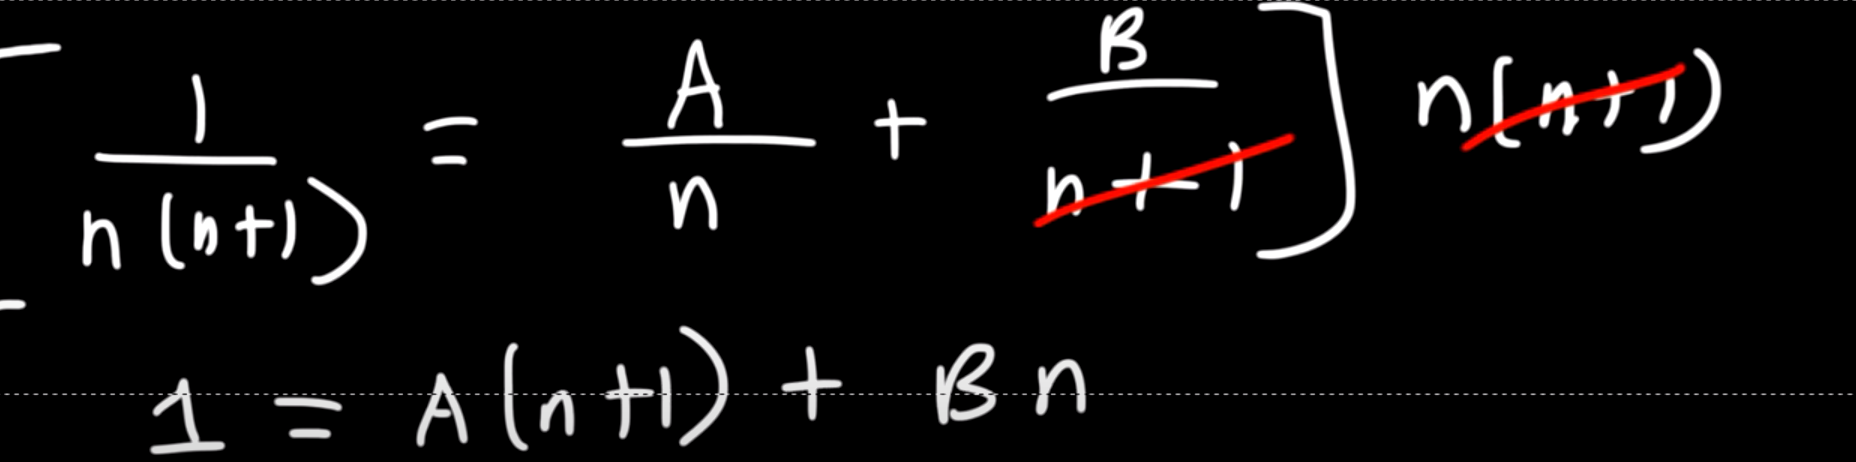 [1/(n(n+1)) = A/n + B/(n+1)] n(n+1)
1 = A(n+1) + Bn